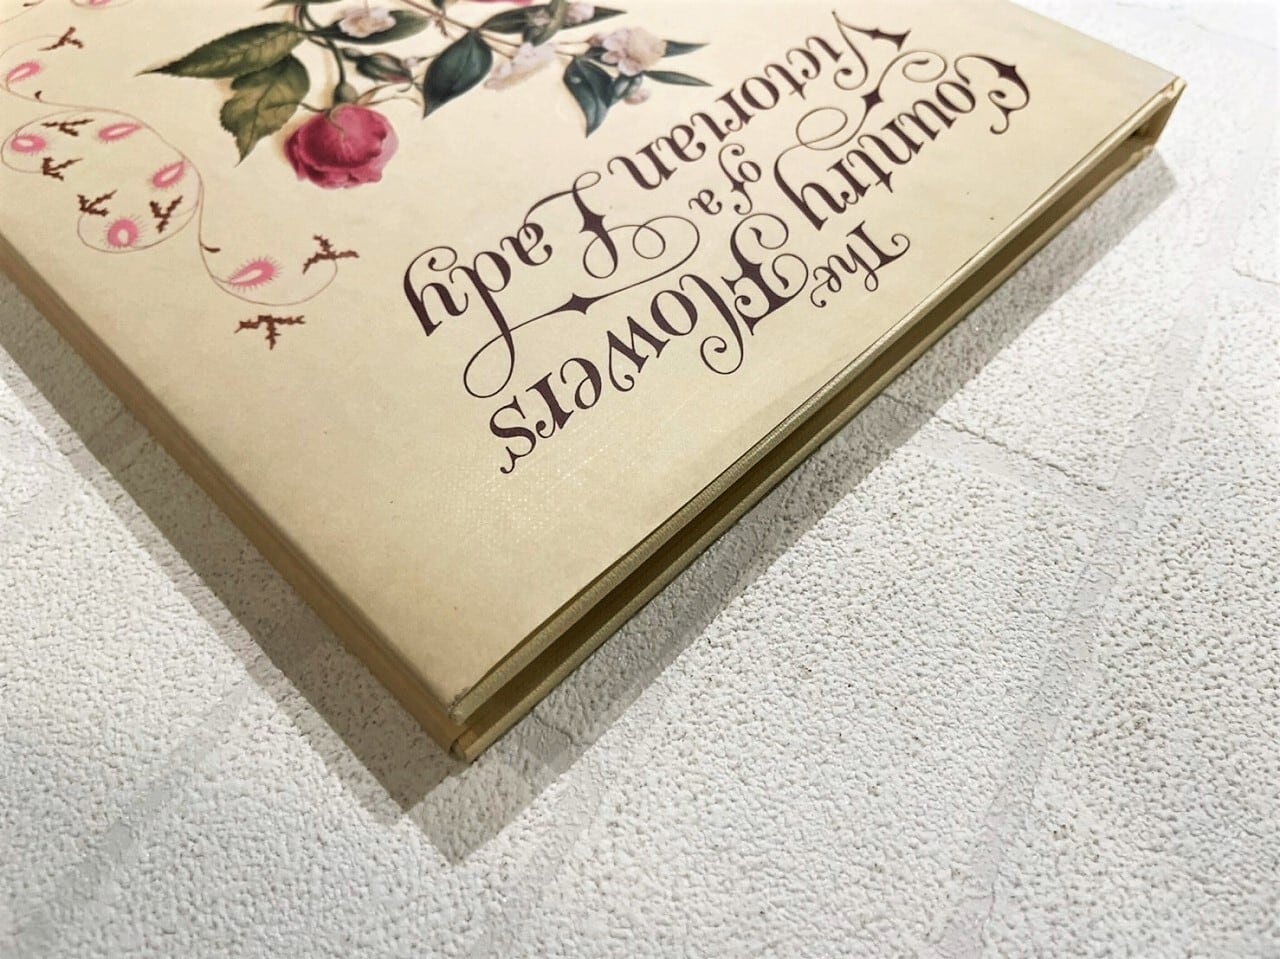 The
Country Flowers
of a
Victorian Lady